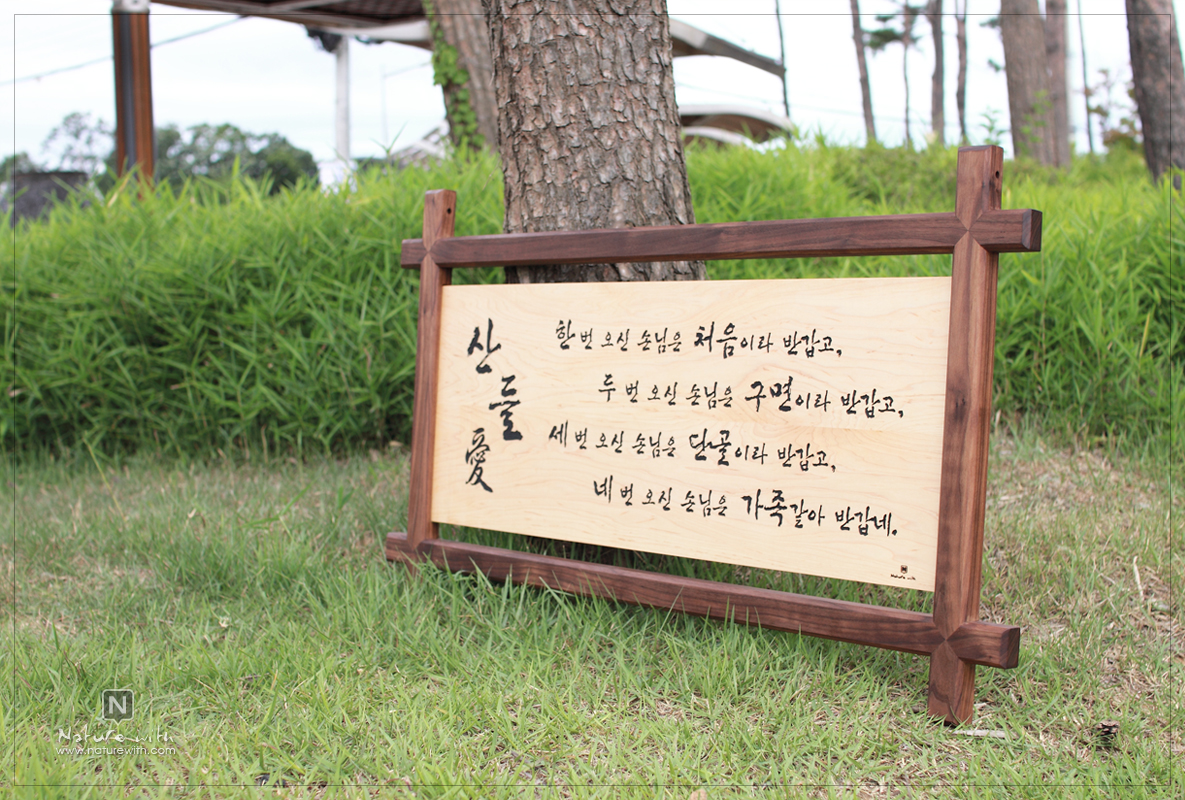 산들愛
한번 오신 손님은 처음이라 반갑고,
두 번 오신 손님은 구면이라 반갑고,
세 번 오신 손님은 단골이라 반갑고,
네 번 오신 손님은 가족같아 반갑네.
N
Nature with
N
Nature with
www.naturewith.com